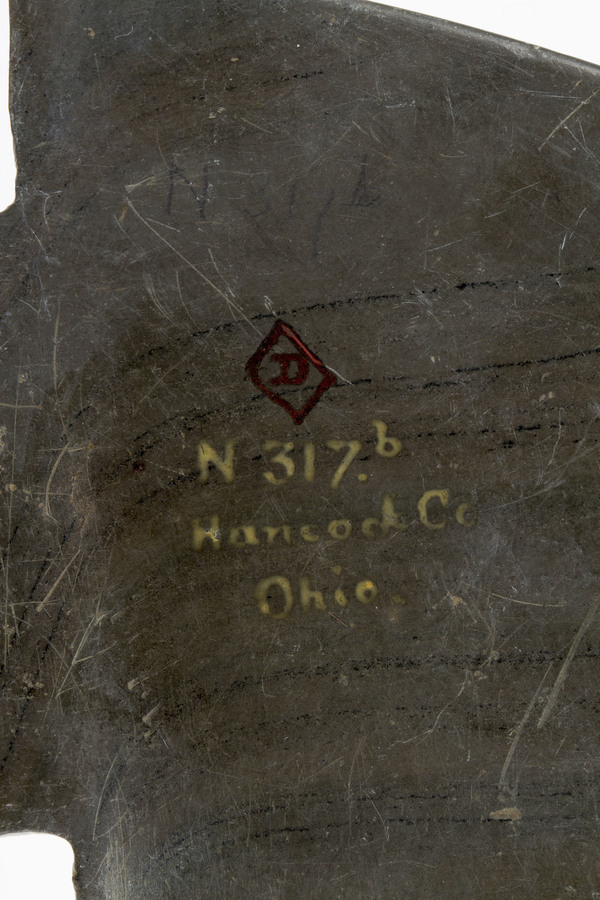 N 317 b
D
N 317.b
Hancock Co
Ohio.